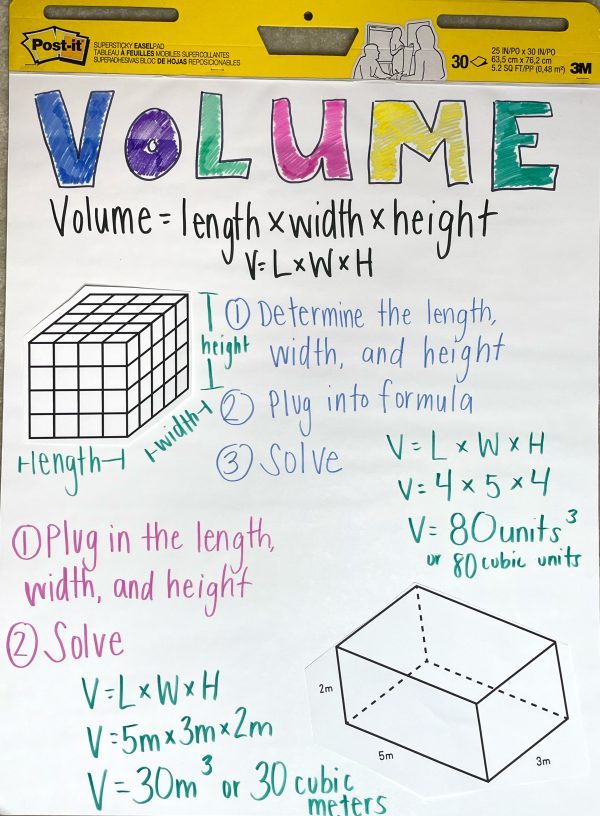 Post-it
SUPERSTICKY EASELPAD
TABLEAU À FEUILLES MOBILES SUPERCOLLANTES
SUPERADHESIVAS BLOC DE HOJAS REPOSICIONABLES
30
25 IN/PO x 30 IN/PO
63,5 cm x 76,2 cm
5.2 SQ FT/PP (0,48 m²)
3M
VOLUME
Volume = length x width x height
V = L x W x H
① Determine the length,
width, and height
② Plug into formula
③ Solve
height
width
length
V = L x W x H
V = 4 x 5 x 4
V = 80 units³
or 80 cubic units
① Plug in the length,
width, and height
② Solve
V = L x W x H
V = 5m x 3m x 2m
V = 30m³ or 30 cubic
meters
2m
5m
3m